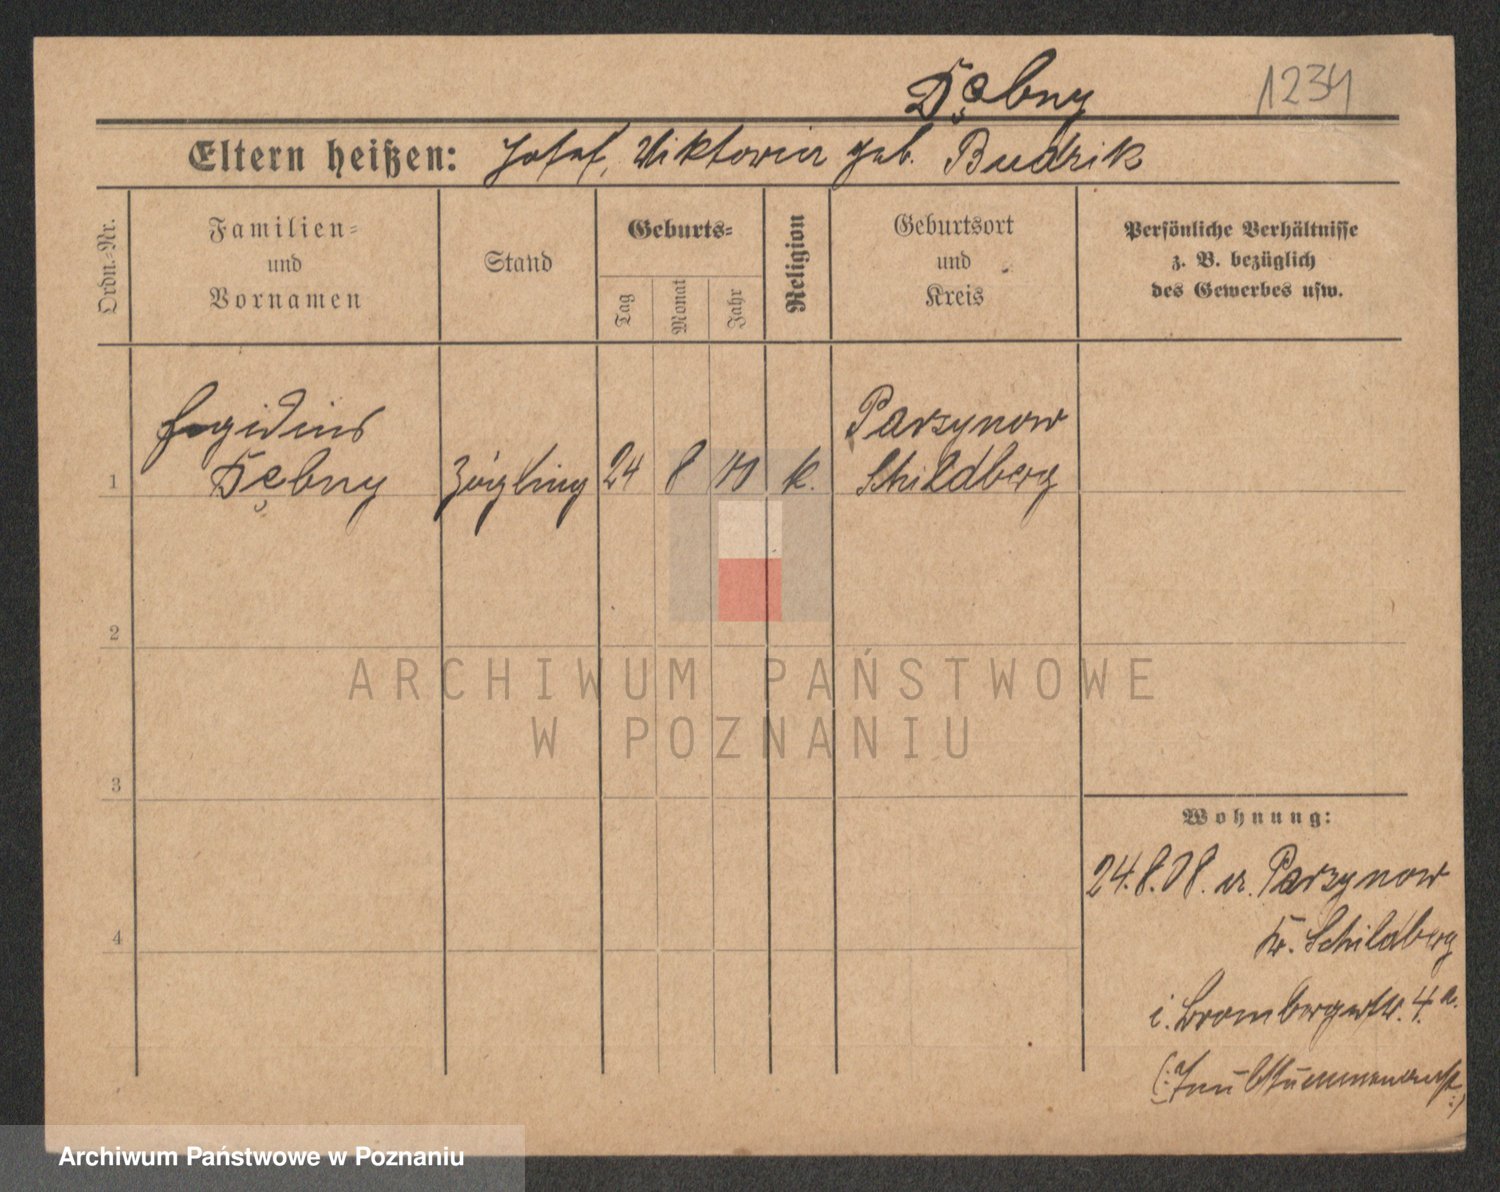 Dębny
1234
Eltern heißen: Josef, Viktoria geb. Budzik
Ordn.-Nr.
Familien-
und
Vornamen
Stand
Geburts-
Tag
Monat
Jahr
Religion
Geburtsort
und
Kreis
Persönliche Verhältnisse
z. B. bezüglich
des Gewerbes usw.
Aegidius
Parzynow
1 Dębny Zögling 24 8 k. Schildberg
2
3
4
Wohnung:
24.8.08. Parzynow
Kr. Schildberg
i. Brombergerstr. 4a.
(: Taubstummenanst :)
ARCHIWUM PAŃSTWOWE
W POZNANIU
Archiwum Państwowe w Poznaniu